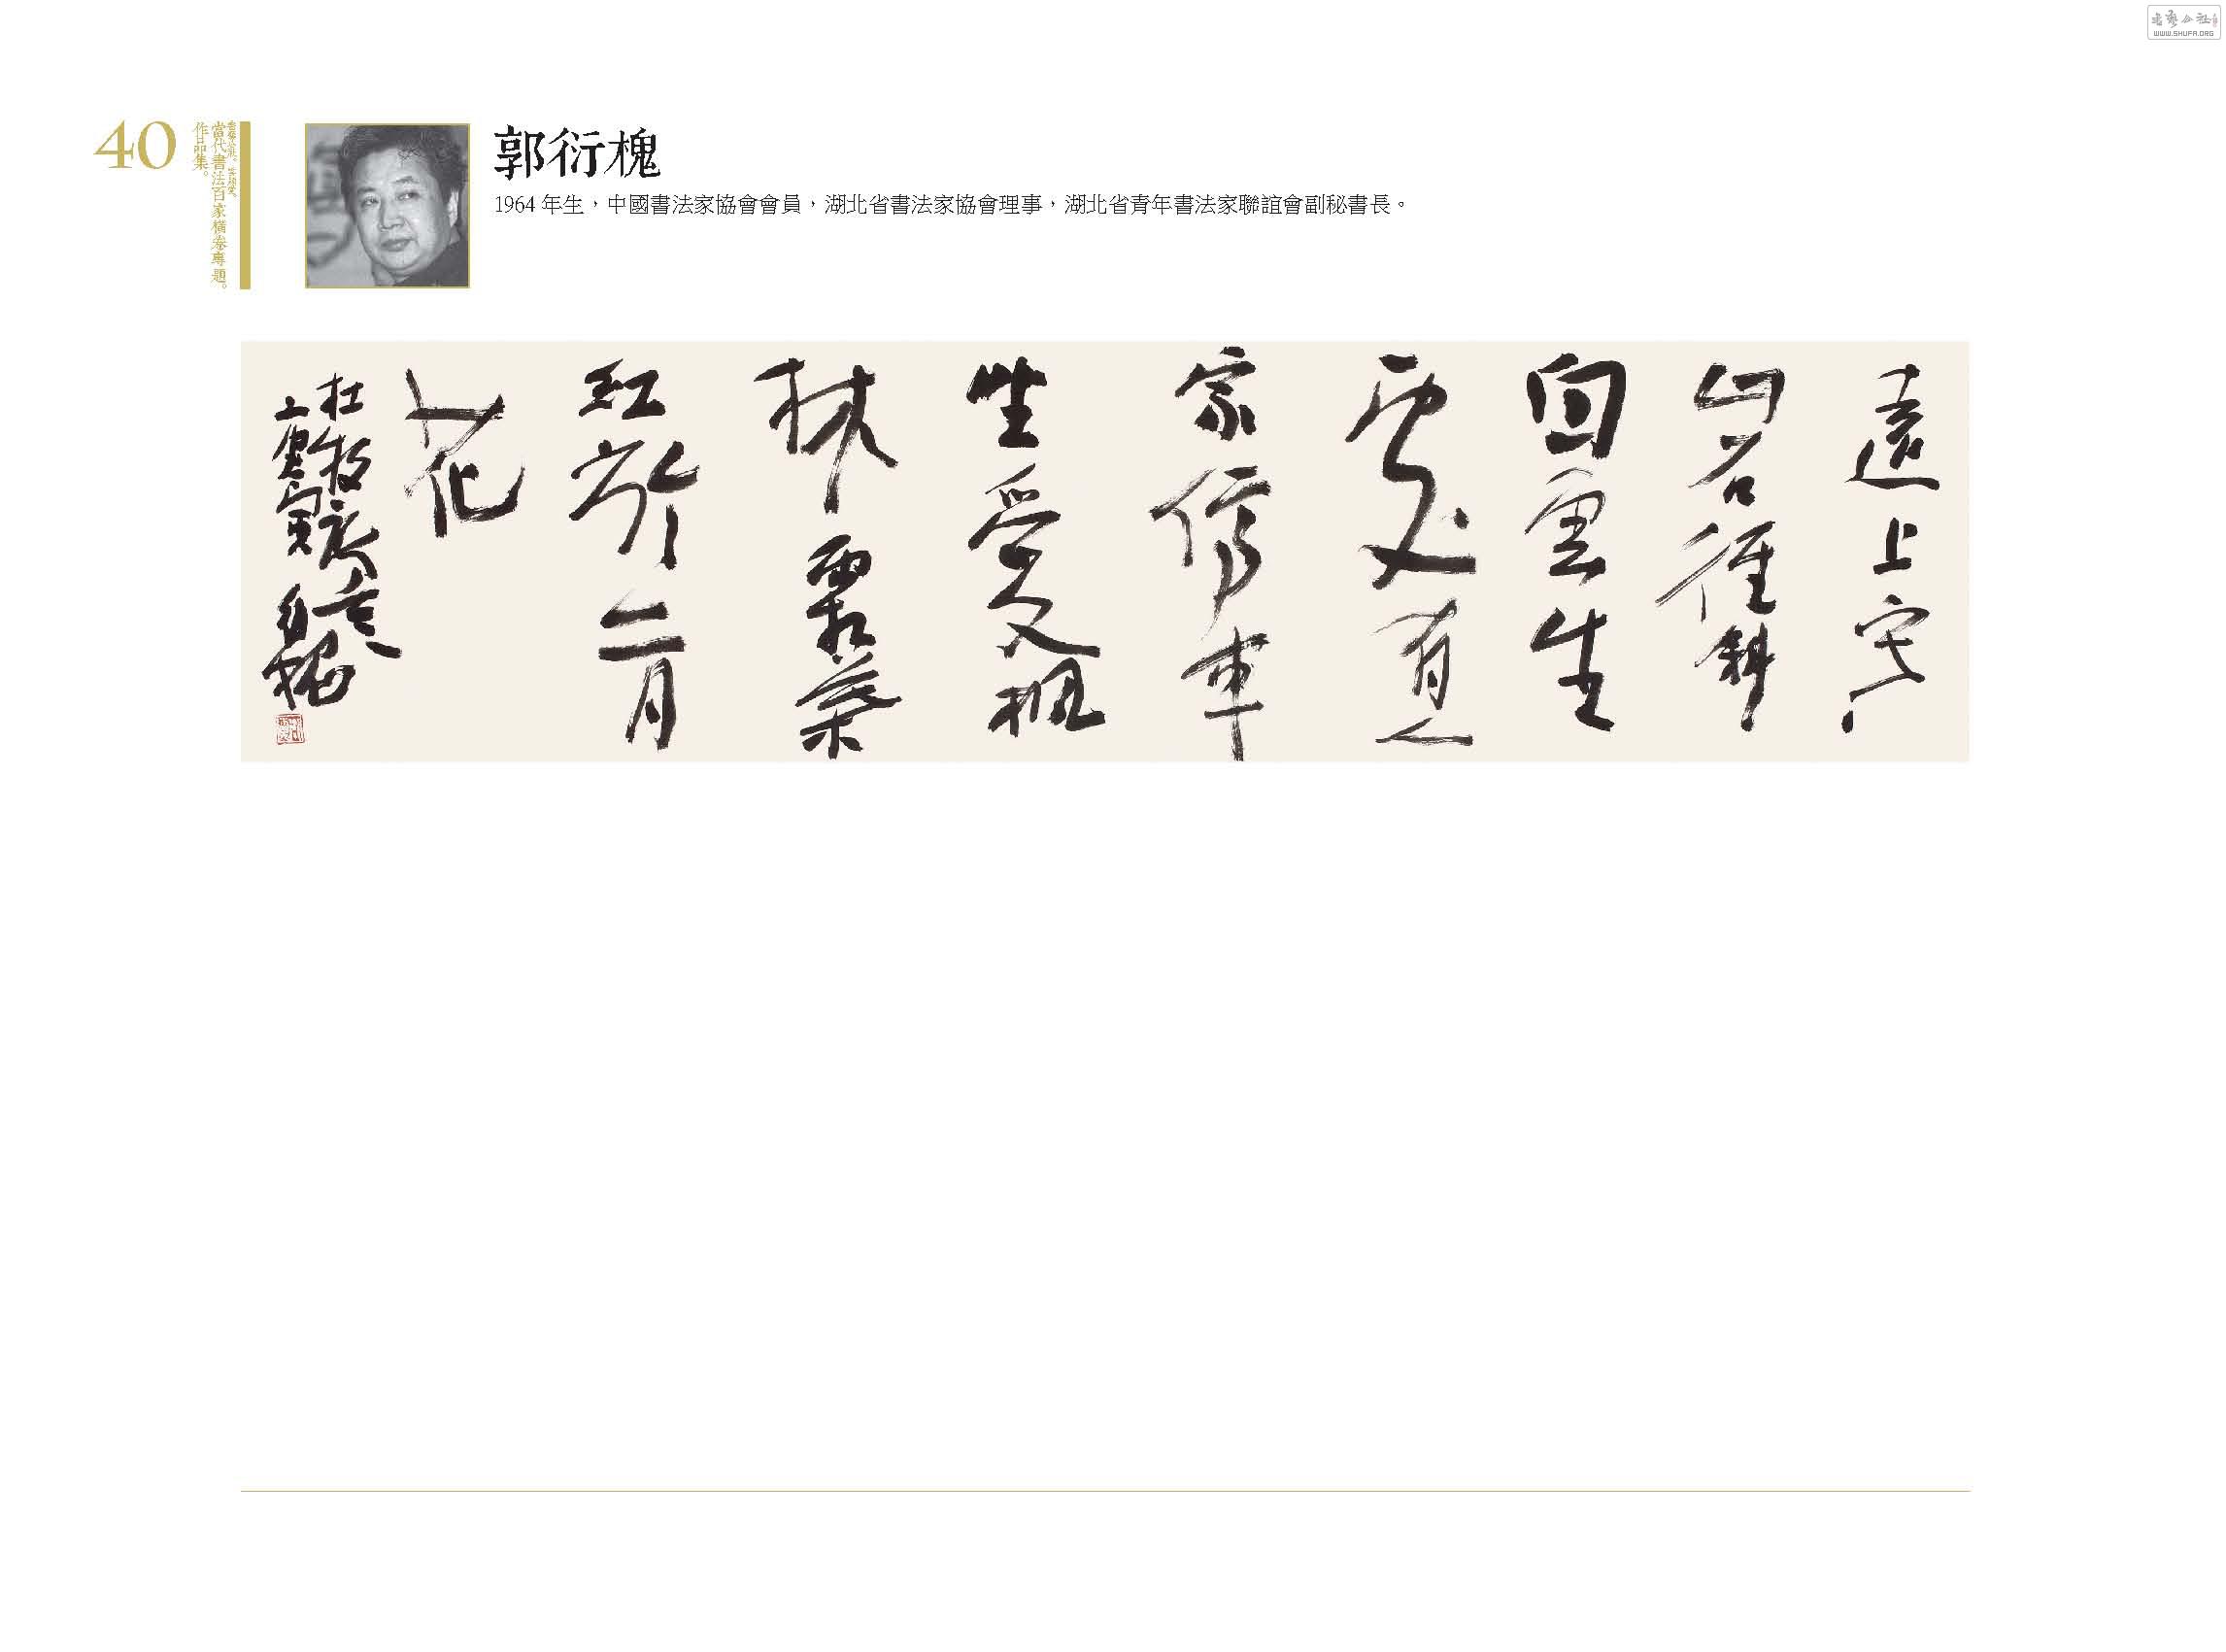 書藝公社
WWW.SHUFA.ORG
40
當代書法百家橫卷專題。
作品集。
郭衍槐
1964 年生，中國書法家協會會員，湖北省書法家協會理事，湖北省青年書法家聯誼會副秘書長。
遠上寒
山石徑斜
白雲生
處有人
家停車
坐愛楓
林霜葉
紅於二月
花
杜牧
衍槐